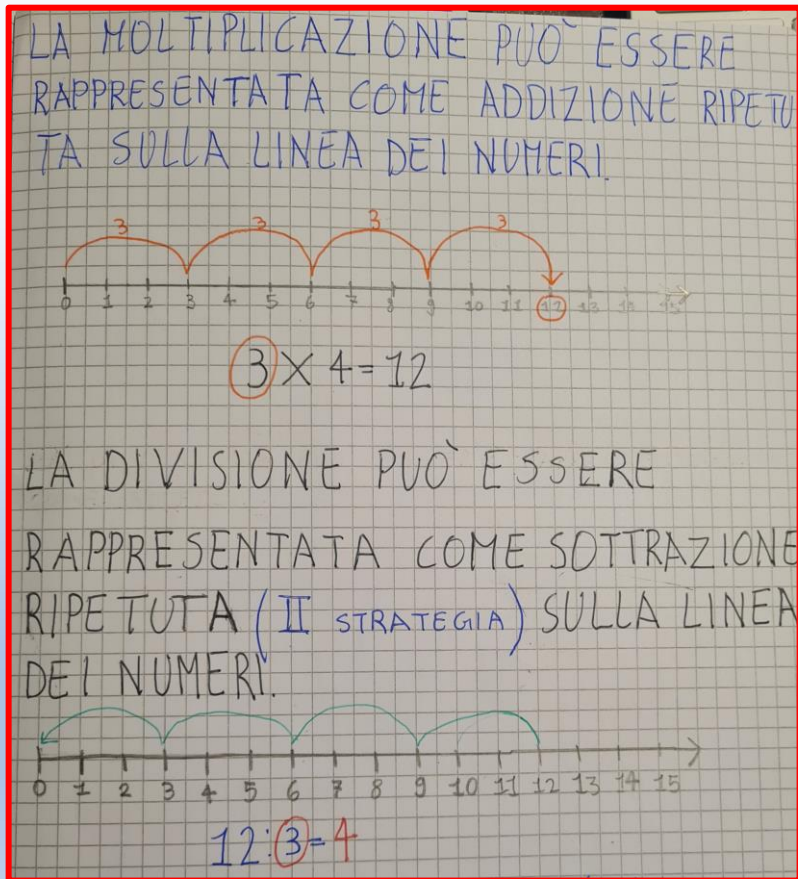 LA MOLTIPLICAZIONE PUÒ ESSERE
RAPPRESENTATA COME ADDIZIONE RIPETU
TA SULLA LINEA DEI NUMERI.
3 3 3 3
0 1 2 3 4 5 6 7 8 9 10 11 12 13 14 15
3 X 4 = 12
LA DIVISIONE PUÒ ESSERE
RAPPRESENTATA COME SOTTRAZIONE
RIPETUTA (II STRATEGIA) SULLA LINEA
DEI NUMERI.
0 1 2 3 4 5 6 7 8 9 10 11 12 13 14 15
12:3=4